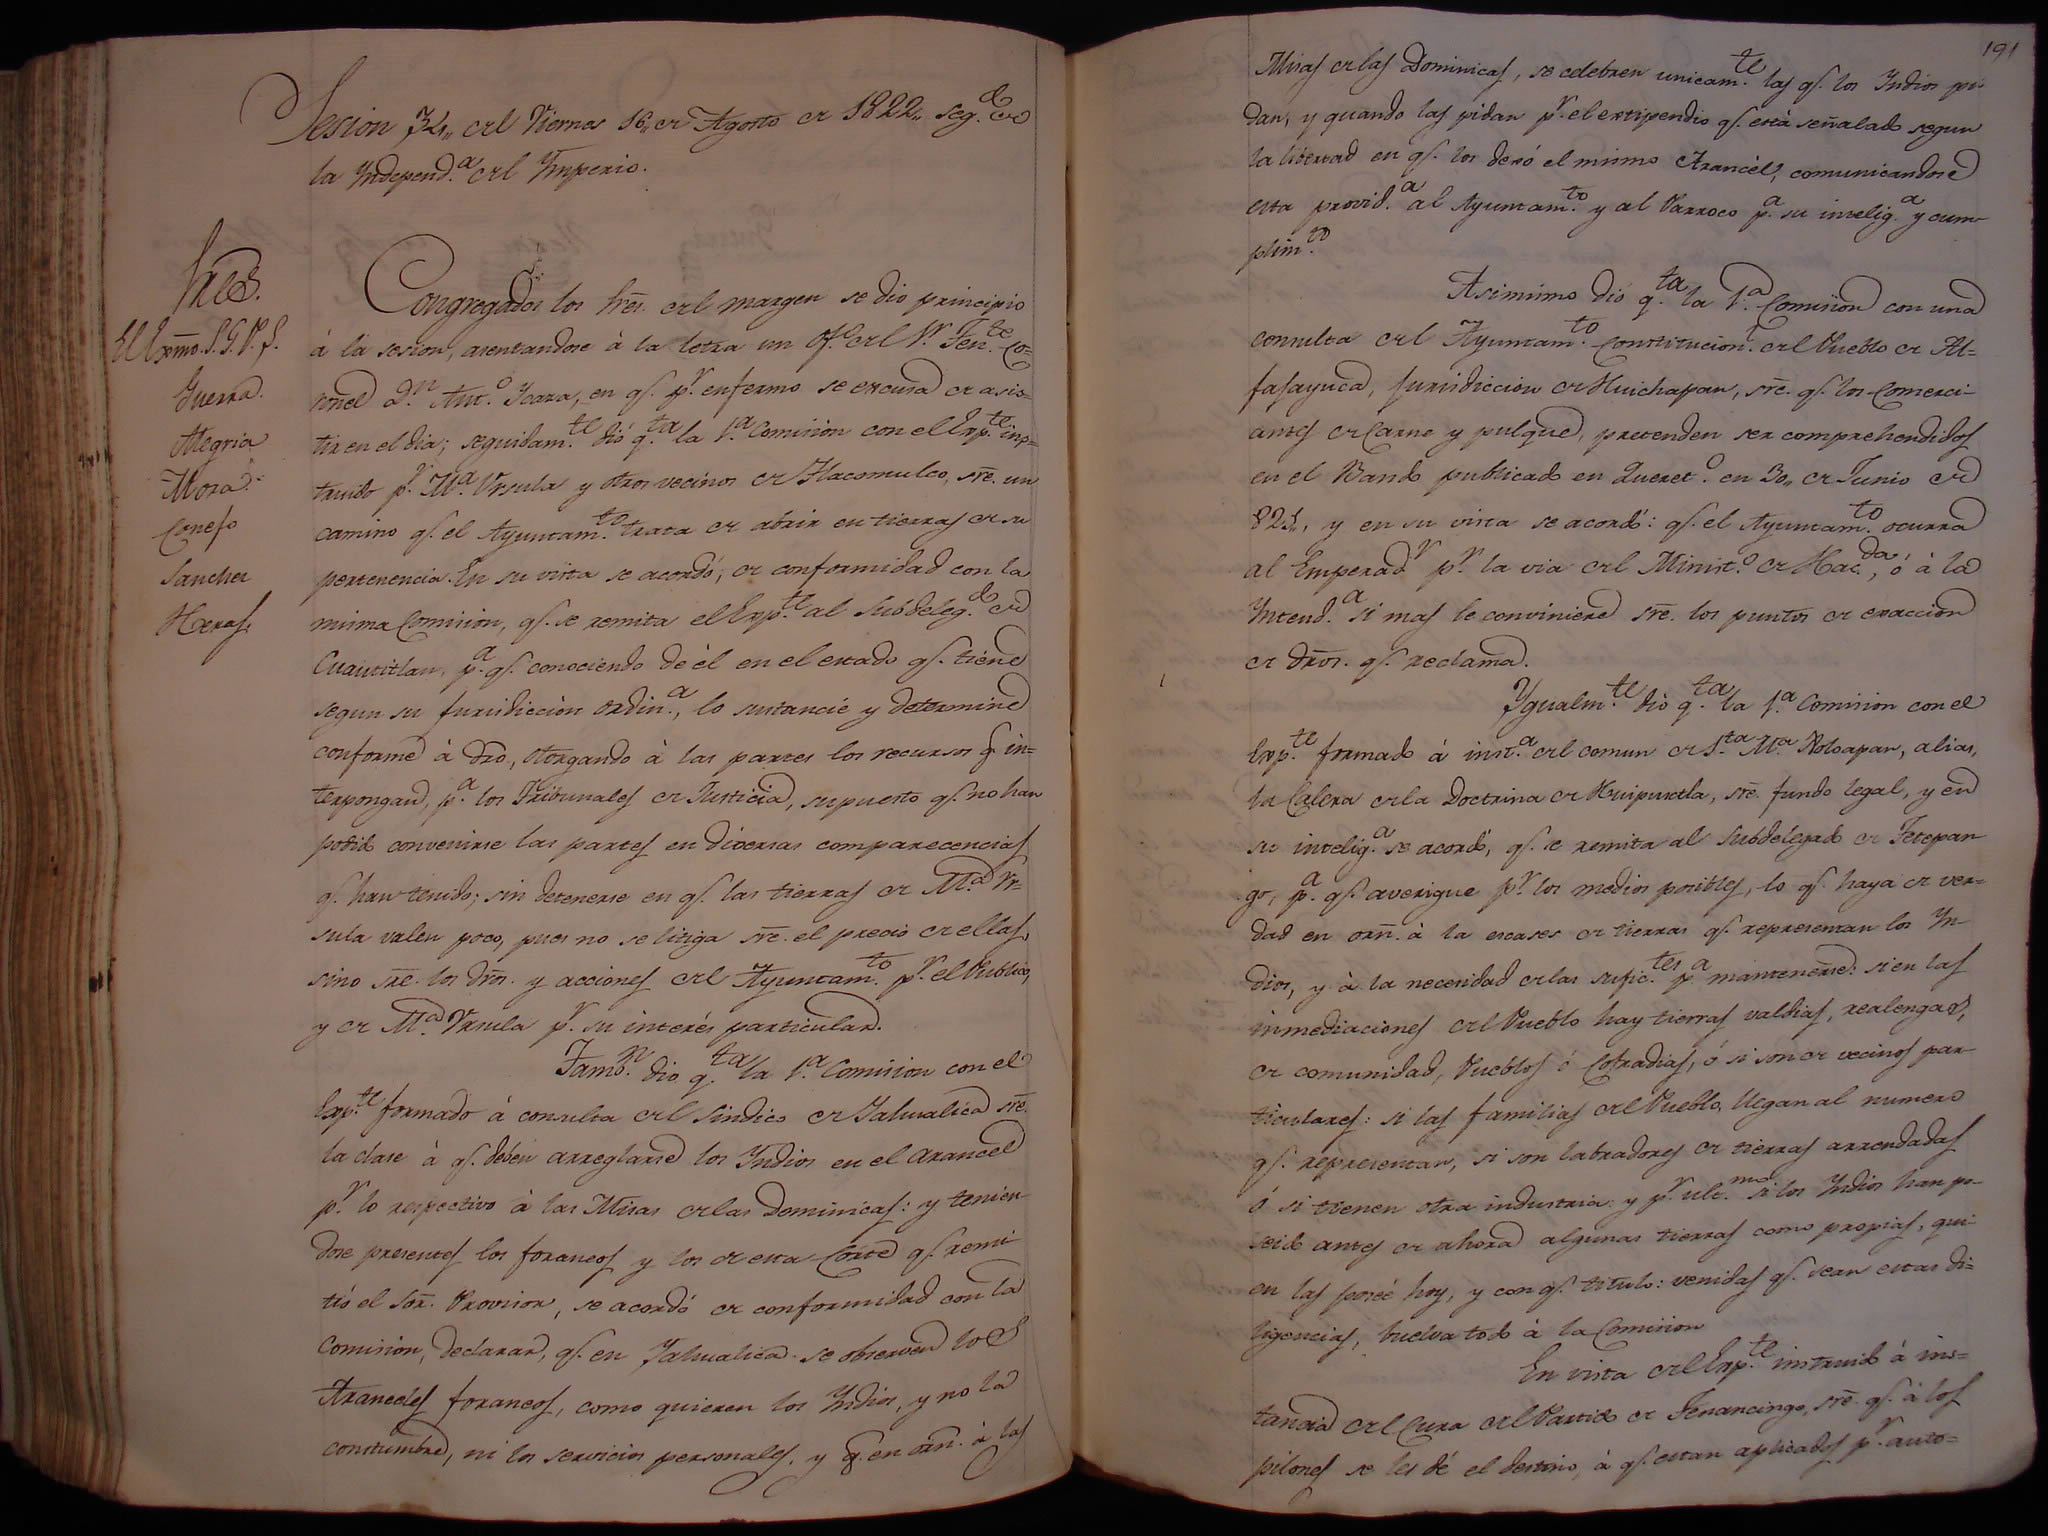 Sesion 34,, del Viernes 16,, de Agosto de 1822,, seg.do de
la Independ.a del Ymperio.
Sres.
El Exmo. S. G. P. S.
Guerra.
Alegria
Mora.
Conejo
Sanchez
Heras.
Congregados los Sres. del margen se dio principio
á la sesion, asentandose à la letra un Of.o del Sr. Ten.te Co-
ronel D.n Ant.o Ycaza, en q.e p.r enfermo se excusa de asis-
tir en el dia; seguidam.te dió q.ta la 1.a Comision con el Exp.te ins-
truido p.r M.a Ursula y otros vecinos de Tlacomulco, sre. un
camino q.e el Ayuntam.to trata de abrir en tierras de su
pertenencia. En su vista se acordó, de conformidad con la
misma Comision, q.e se remita el Exp.te al Subdeleg.do de
Cuautitlan, p.a q.e conociendo de èl en el estado q.e tiene
segun su jurisdiccion ordin.a, lo sustancie y determine
conforme à dro, otorgando à las partes los recursos q.e in=
terpongan, p.a los Tribunales de Justicia, supuesto q.e no han
podido convenirse las partes en diversas comparecencias
q.e han tenido; sin detenerse en q.e las tierras de M.a Ur-
sula valen poco, pues no se litiga sre. el precio de ellas,
sino sre. los dros. y acciones del Ayuntam.to p.r el Publico,
y de M.a Ursula p.r su interés particular.
Tamb.n dio q.ta la 1.a Comision con el
Exp.te formado à consulta del Sindico de Yahualica sre.
la clase à q.e deben arreglarse los Yndios en el arancel
p.r lo respectivo à las Misas de las Dominicas: y tenien-
dose presentes los foraneos y los de esta Corte q.e remi-
tió el Sor. Provisor, se acordó de conformidad con la
Comision, declarar, q.e en Yahualica se observen los
Aranceles foraneos, como quieren los Yndios, y no la
constumbre, ni los servicios personales, y q.e en orn. à las
191
Misas de las Dominicas, se celebren unicam.te las q.e los Yndios pi-
dan, y quando las pidan p.r el estipendio q.e está señalado segun
la libertad en q.e los dexó el mismo Arancèl, comunicandose
esta provid.a al Ayuntam.to y al Parroco p.a su intelig.a y cum-
plim.to
Asimismo dió q.ta la 1.a Comision con una
consulta del Ayuntam.to Constitucion.l del Pueblo de Al=
fajayuca, jurisdiccion de Huichapan, sre. q.e los Comerci-
antes de Carne y pulque, pretenden ser comprehendidos
en el Bando publicado en Queret.o en 30,, de Junio de
821,, y en su vista se acordó: q.e el Ayuntam.to ocurra
al Emperad.r p.r la via del Minist.o de Hac.da, ó à la
Yntend.a si mas le conviniere sre. los puntos de exaccion
de dros. q.e reclama.
Ygualm.te diò q.ta la 1.a Comision con el
Exp.te formado á inst.a del comun de S.ta M.a Xoloapan, alias,
la Calera de la Doctrina de Huipuxtla, sre. fundo legal, y en
su intelig.a se acordó, q.e se remita al Subdelegado de Tetepan
go, p.a q.e averigue p.r los medios posibles, lo q.e haya de ver=
dad en orn. à la escases de tierras q.e representan los Yn-
dios, y à la necesidad de las sufic.tes p.a mantenerse: si en las
inmediaciones del Pueblo hay tierras valdias, realengas,
de comunidad, Pueblos ó Cofradias, ó si son de vecinos par-
ticulares: si las familias del Pueblo, llegan al numero
q.e representan, si son labradores de tierras arrendadas
ó si tienen otra industria: y p.r ult.mo si los Yndios han po-
seido antes de ahora algunas tierras como propias, qui-
en las poseé hoy, y con q.e titulo: venidas q.e sean estas di-
ligencias, buelva todo à la Comision
En vista del Exp.te instruido á ins=
tancia del Cura del Partido de Tenancingo, sre. q.e à los
pilones se les dé el destino, à q.e estan aplicados p.r auto=